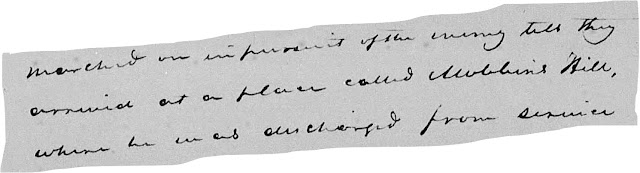 marched on in pursuit of the enemy till they
arrived at a place called Mobbins Hill,
where he was discharged from service